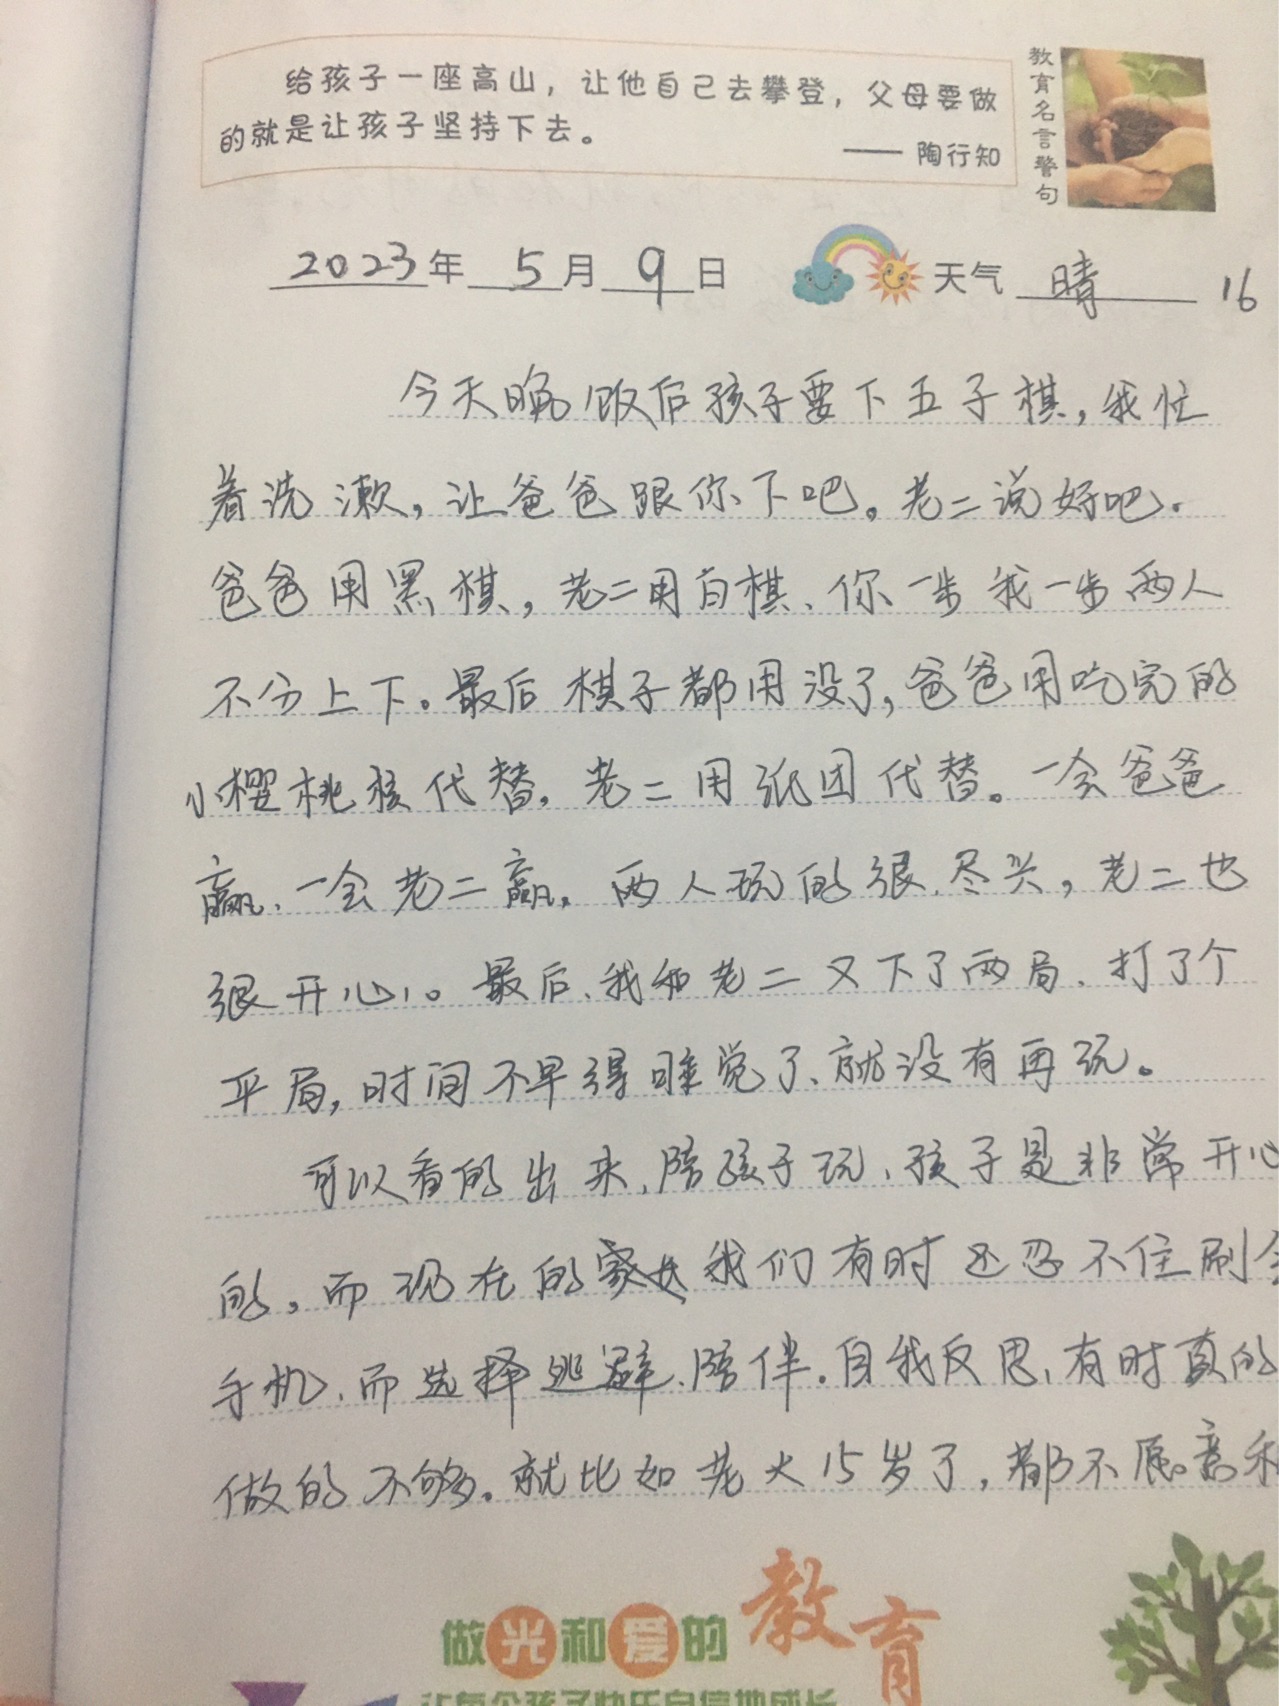 给孩子一座高山，让他自己去攀登，父母要做
的就是让孩子坚持下去。
—— 陶行知
教育名言警句
2023年 5月 9日 天气 晴 16
今天晚饭后孩子要下五子棋，我忙
着洗漱，让爸爸跟你下吧。老二说好吧.
爸爸用黑棋，老二用白棋、你一步我一步两人
不分上下。最后棋子都用没了，爸爸用吃完的
小樱桃核代替，老二用纸团代替。一会爸爸
赢、一会老二赢，两人玩的很尽兴，老二也
很开心。最后、我和老二又下了两局、打了个
平局，时间不早得睡觉了、就没有再玩。
可以看的出来、陪孩子玩、孩子是非常开心
的。而现在的家长我们有时还忍不住刷会
手机、而选择逃避、陪伴.自我反思、有时真的
做的不够。就比如老大15岁了，都不愿意和
做光和爱的教育
让每个孩子快乐自信地成长